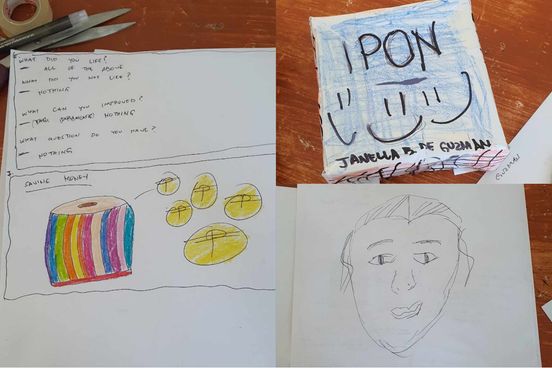 WHAT DID YOU LIKE?
— ALL OF THE ABOVE
WHAT DID YOU NOT LIKE?
— NOTHING
WHAT CAN YOU IMPROVED?
— NOTHING
WHAT QUESTION DO YOU HAVE?
— NOTHING
SAVING MONEY
IPON
JANELLA B. DE GUZMAN
GUZMAN